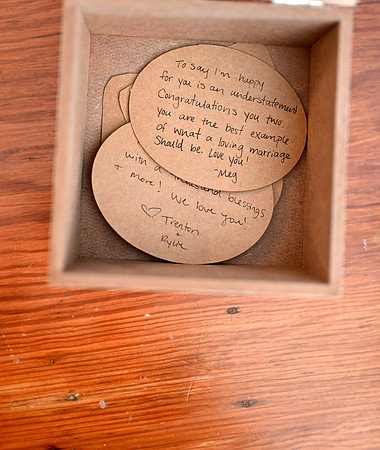 To say I'm happy
for you is an understatement
Congratulations you two.
you are the best example
of what a loving marriage
Should be. Love you!
-Meg
with a thousand blessings
+ more! We love you!
♡ Trenton
+
Rylie